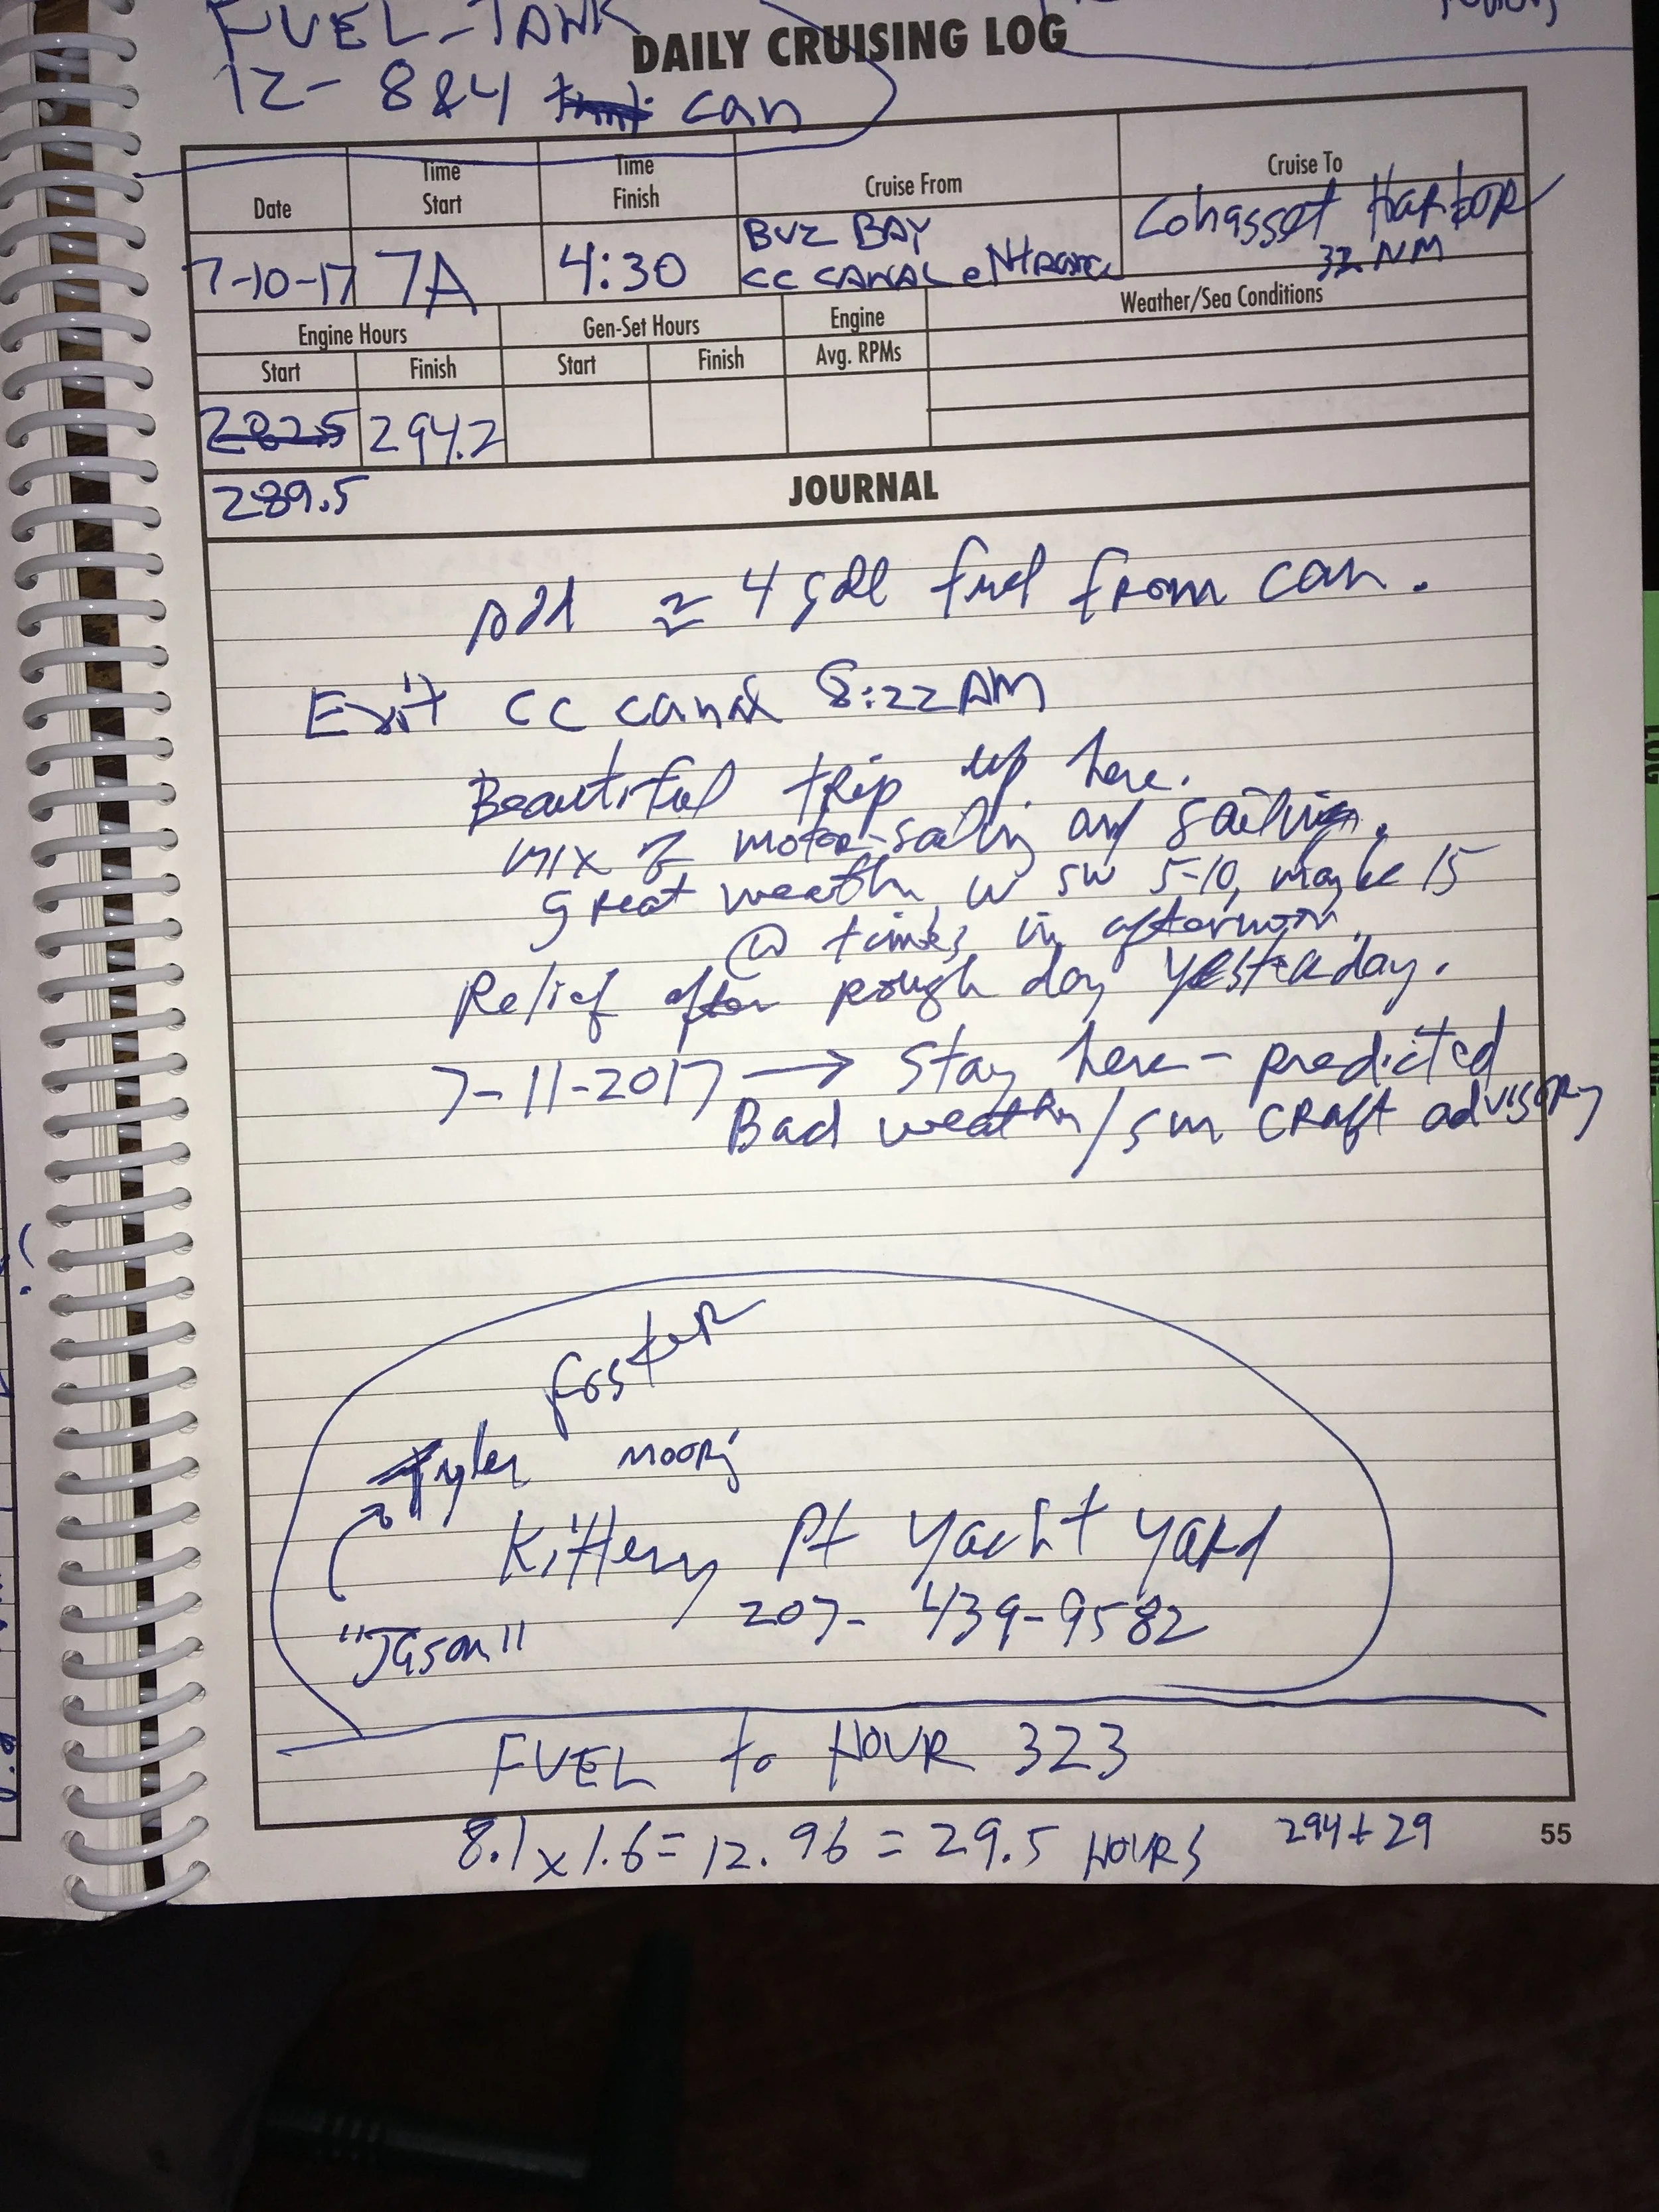 FUEL-TANK
DAILY CRUISING LOG
12- 8&4 can
Date
Time Start
Time Finish
Cruise From
Cruise To
7-10-17
7A
4:30
BUZ BAY
CC CANAL eNtRance
Cohasset HaRboR
32 NM
Engine Hours
Gen-Set Hours
Engine Avg. RPMs
Weather/Sea Conditions
Start
Finish
Start
Finish
282.5
294.2
289.5
JOURNAL
Add ≈ 4 gall fuel from can.
Exit CC canal 8:22 AM
Beautiful trip up here.
mix of motor-sailing and sailing.
great weather w SW 5-10, maybe 15
@ times in afternoon.
Relief after rough day yesterday.
7-11-2017 → Stay here - predicted
Bad weather/sm craft advisory
foster
Tyler mooring
Kittery Pt Yacht Yard
207- 439-9582
"Jason"
FUEL to HOUR 323
8.1 x 1.6 = 12.96 = 29.5 HOURS 294+29
55